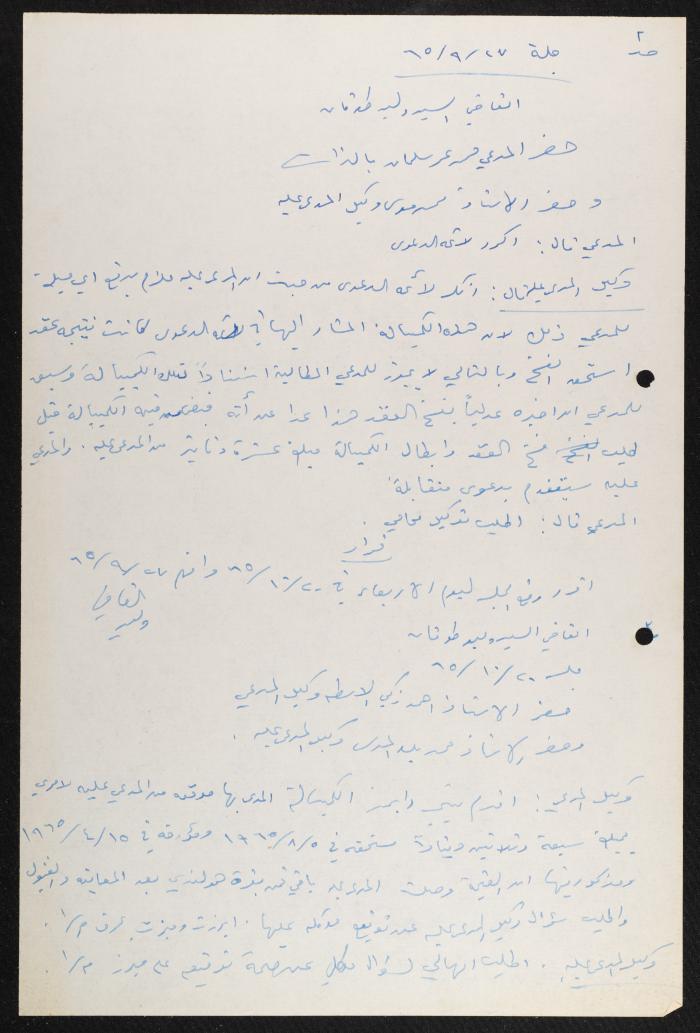 جلسة ٢٧/٩/٦٥
القاضي السيد وليد طوقان
حضر المدعي عمر سلمان بالذات
وحضر الاستاذ موسى وكيل المدعى عليه
المدعي قال: اكرر لائحة الدعوى
وكيل المدعى عليه قال: انكر لائحة الدعوى من حيث ان المدعى عليه ملزم بدفع اي مبلغ
للمدعي ذلك لان هذه الكمبيالة المشار اليها في لائحة الدعوى كانت نتيجة عقد
استحق الفسخ وبالتالي لا يجوز للمدعي المطالبة استناداً لتلك الكمبيالة وسبق
للمدعي ان اخبره عدلياً بفسخ العقد هذا عدا عن أنه قبض قيمة الكمبيالة قبل
طلب فسخ العقد وابطال الكمبيالة مبلغ عشرة دنانير من المدعى عليه . والمدعى
عليه سيتقدم بدعوى متقابلة
المدعي قال: اطلب توكيل محامي .
قرار
اقرر رفع الجلسة ليوم الاربعاء في ٢٠/١٠/٦٥ وافهم ٢٧/٩/٦٥
القاضي
وليد
القاضي السيد وليد طوقان
جلسة ٢٠/١٠/٦٥
حضر الاستاذ احمد زكي وكيل المدعي
وحضر الاستاذ محمد وكيل المدعى عليه .
وكيل المدعي: اقدم وابرز الكمبيالة المدعى بها موقعة من المدعى عليه لامري
بمبلغ سبعة وثلاثين ديناراً مستحقة في ٥/٨/١٩٦٥ ومؤرخة في ١٥/٤/١٩٦٥
ومذكور فيها ان القيمة وصلت المدعى عليه باقي ثمن بقرة هولندي بعد المعاينة والقبول
واطلب سؤال وكيل المدعى عليه عن توقيع موكله عليها . ابرزت وميزت بحرف م/١ .
وكيل المدعى عليه . اطلب امهالي لسؤال موكلي عن صحة توقيعه على مبرز م/١ .